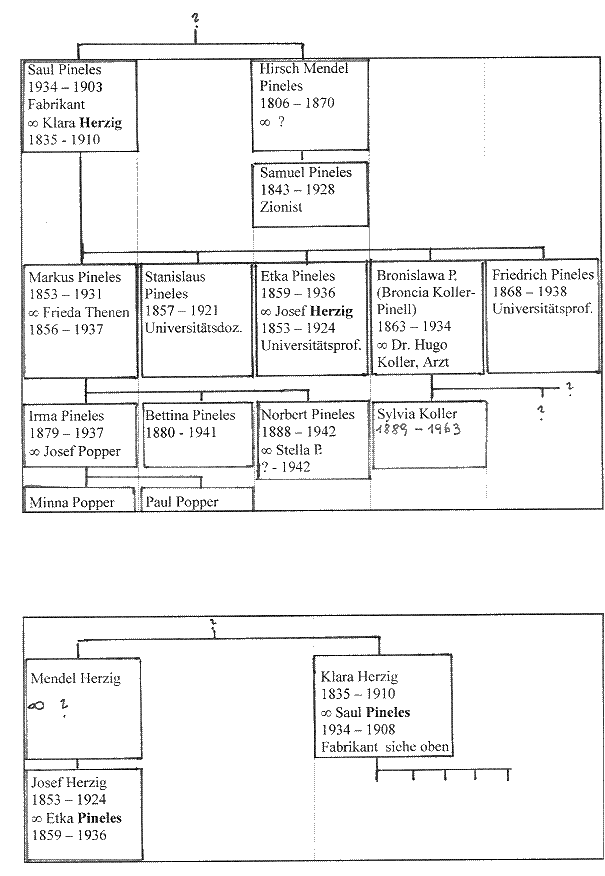 ?
Saul Pineles
1934 – 1903
Fabrikant
∞ Klara Herzig
1835 - 1910
Hirsch Mendel
Pineles
1806 – 1870
∞ ?
Samuel Pineles
1843 – 1928
Zionist
Markus Pineles
1853 – 1931
∞ Frieda Thenen
1856 – 1937
Stanislaus
Pineles
1857 – 1921
Universitätsdoz.
Etka Pineles
1859 – 1936
∞ Josef Herzig
1853 – 1924
Universitätsprof.
Bronislawa P.
(Broncia Koller-
Pinell)
1863 – 1934
∞ Dr. Hugo
Koller, Arzt
Friedrich Pineles
1868 – 1938
Universitätsprof.
?
?
Irma Pineles
1879 – 1937
∞ Josef Popper
Bettina Pineles
1880 - 1941
Norbert Pineles
1888 – 1942
∞ Stella P.
? - 1942
Sylvia Koller
1889 – 1963
Minna Popper
Paul Popper
?
Mendel Herzig
∞ ?
Klara Herzig
1835 - 1910
∞ Saul Pineles
1934 – 1908
Fabrikant siehe oben
Josef Herzig
1853 – 1924
∞ Etka Pineles
1859 – 1936